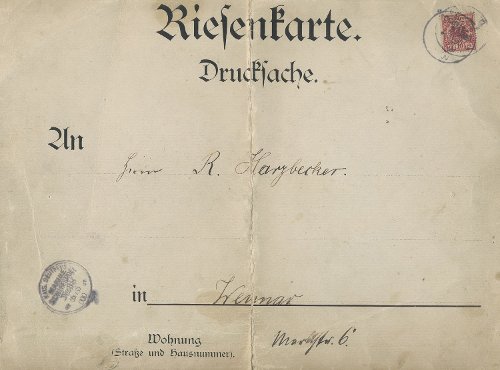 Riesenkarte.
Drucksache.
An
Herrn R. Harzbecher.
in Weimar
Wohnung Marktstr. 6.
(Straße und Hausnummer).